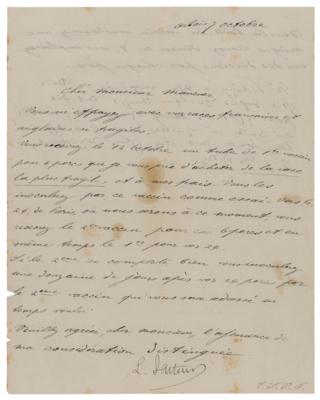 Arbois 7 octobre
Cher monsieur
Vous m'effrayez avec vos races françaises et
anglaises si fragiles.
Vous recevrez le 12 octobre un tube de 1er vaccin
pour 6 porcs que je vous prie d'acheter de la race
la plus fragile, et à mes frais. Vous les
inoculerez par ce vaccin comme essai. Vers le
24, de Paris, où nous serons à ce moment, vous
recevrez le 2e vaccin pour ces 6 porcs et en
même temps le 1er pour vos 24.
Si le 2ème se comporte bien vous inoculerez
une douzaine de jours après vos 24 porcs par
le 2ème vaccin qui vous sera adressé en
temps voulu.
Veuillez agréer, cher monsieur, l'assurance de
ma considération distinguée
L. Pasteur